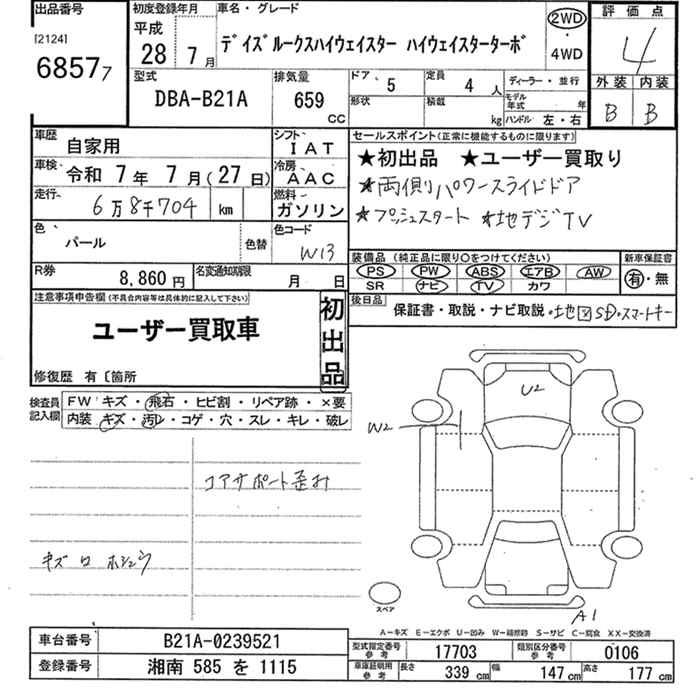 出品番号
[2124]
6857 7
初度登録年月
平成
28 7月
車名・グレード
デイズルークスハイウェイスター ハイウェイスターターボ
2WD
・
4WD
評価点
4
外装 内装
B B
型式
DBA-B21A
排気量
659
CC
ドア 5
定員 4 人
形状
積載 kg
ディーラー・並行
モデル年式 年
ハンドル 左・右
車歴 自家用
シフト IAT
車検 令和 7 年 7 月 (27 日)
冷房 AAC
走行 6万8千704 km
燃料 ガソリン
色 パール
色替
色コード W13
R券 8,860 円
名変通知期限 月 日
セールスポイント(正常に機能するものに限ります)
★初出品 ★ユーザー買取り
★両側パワースライドドア
★プッシュスタート ★地デジTV
装備品 (純正品に限り○をつけてください)
PS PW ABS エアB AW
SR ナビ TV カワ
新車保証書
有・無
後日品
保証書・取説・ナビ取説・地図SD・スマートキー
注意事項申告欄(不具合内容等は具体的に記入して下さい)
ユーザー買取車
初出品
修復歴 有〔箇所
検査員記入欄
FW キズ・飛石・ヒビ割・リペア跡・×要
内装 キズ・汚レ・コゲ・穴・スレ・キレ・破レ
コアサポート歪み
キズ
U2
W2
A1
スペア
A－キズ E－エクボ U－凹み W－補修跡 S－サビ C－腐食 XX－交換済
車台番号 B21A-0239521
登録番号 湘南 585 を 1115
型式指定番号 参考 17703
類別区分番号 参考 0106
車庫証明用 参考 長さ 339 cm 幅 147 cm 高さ 177 cm